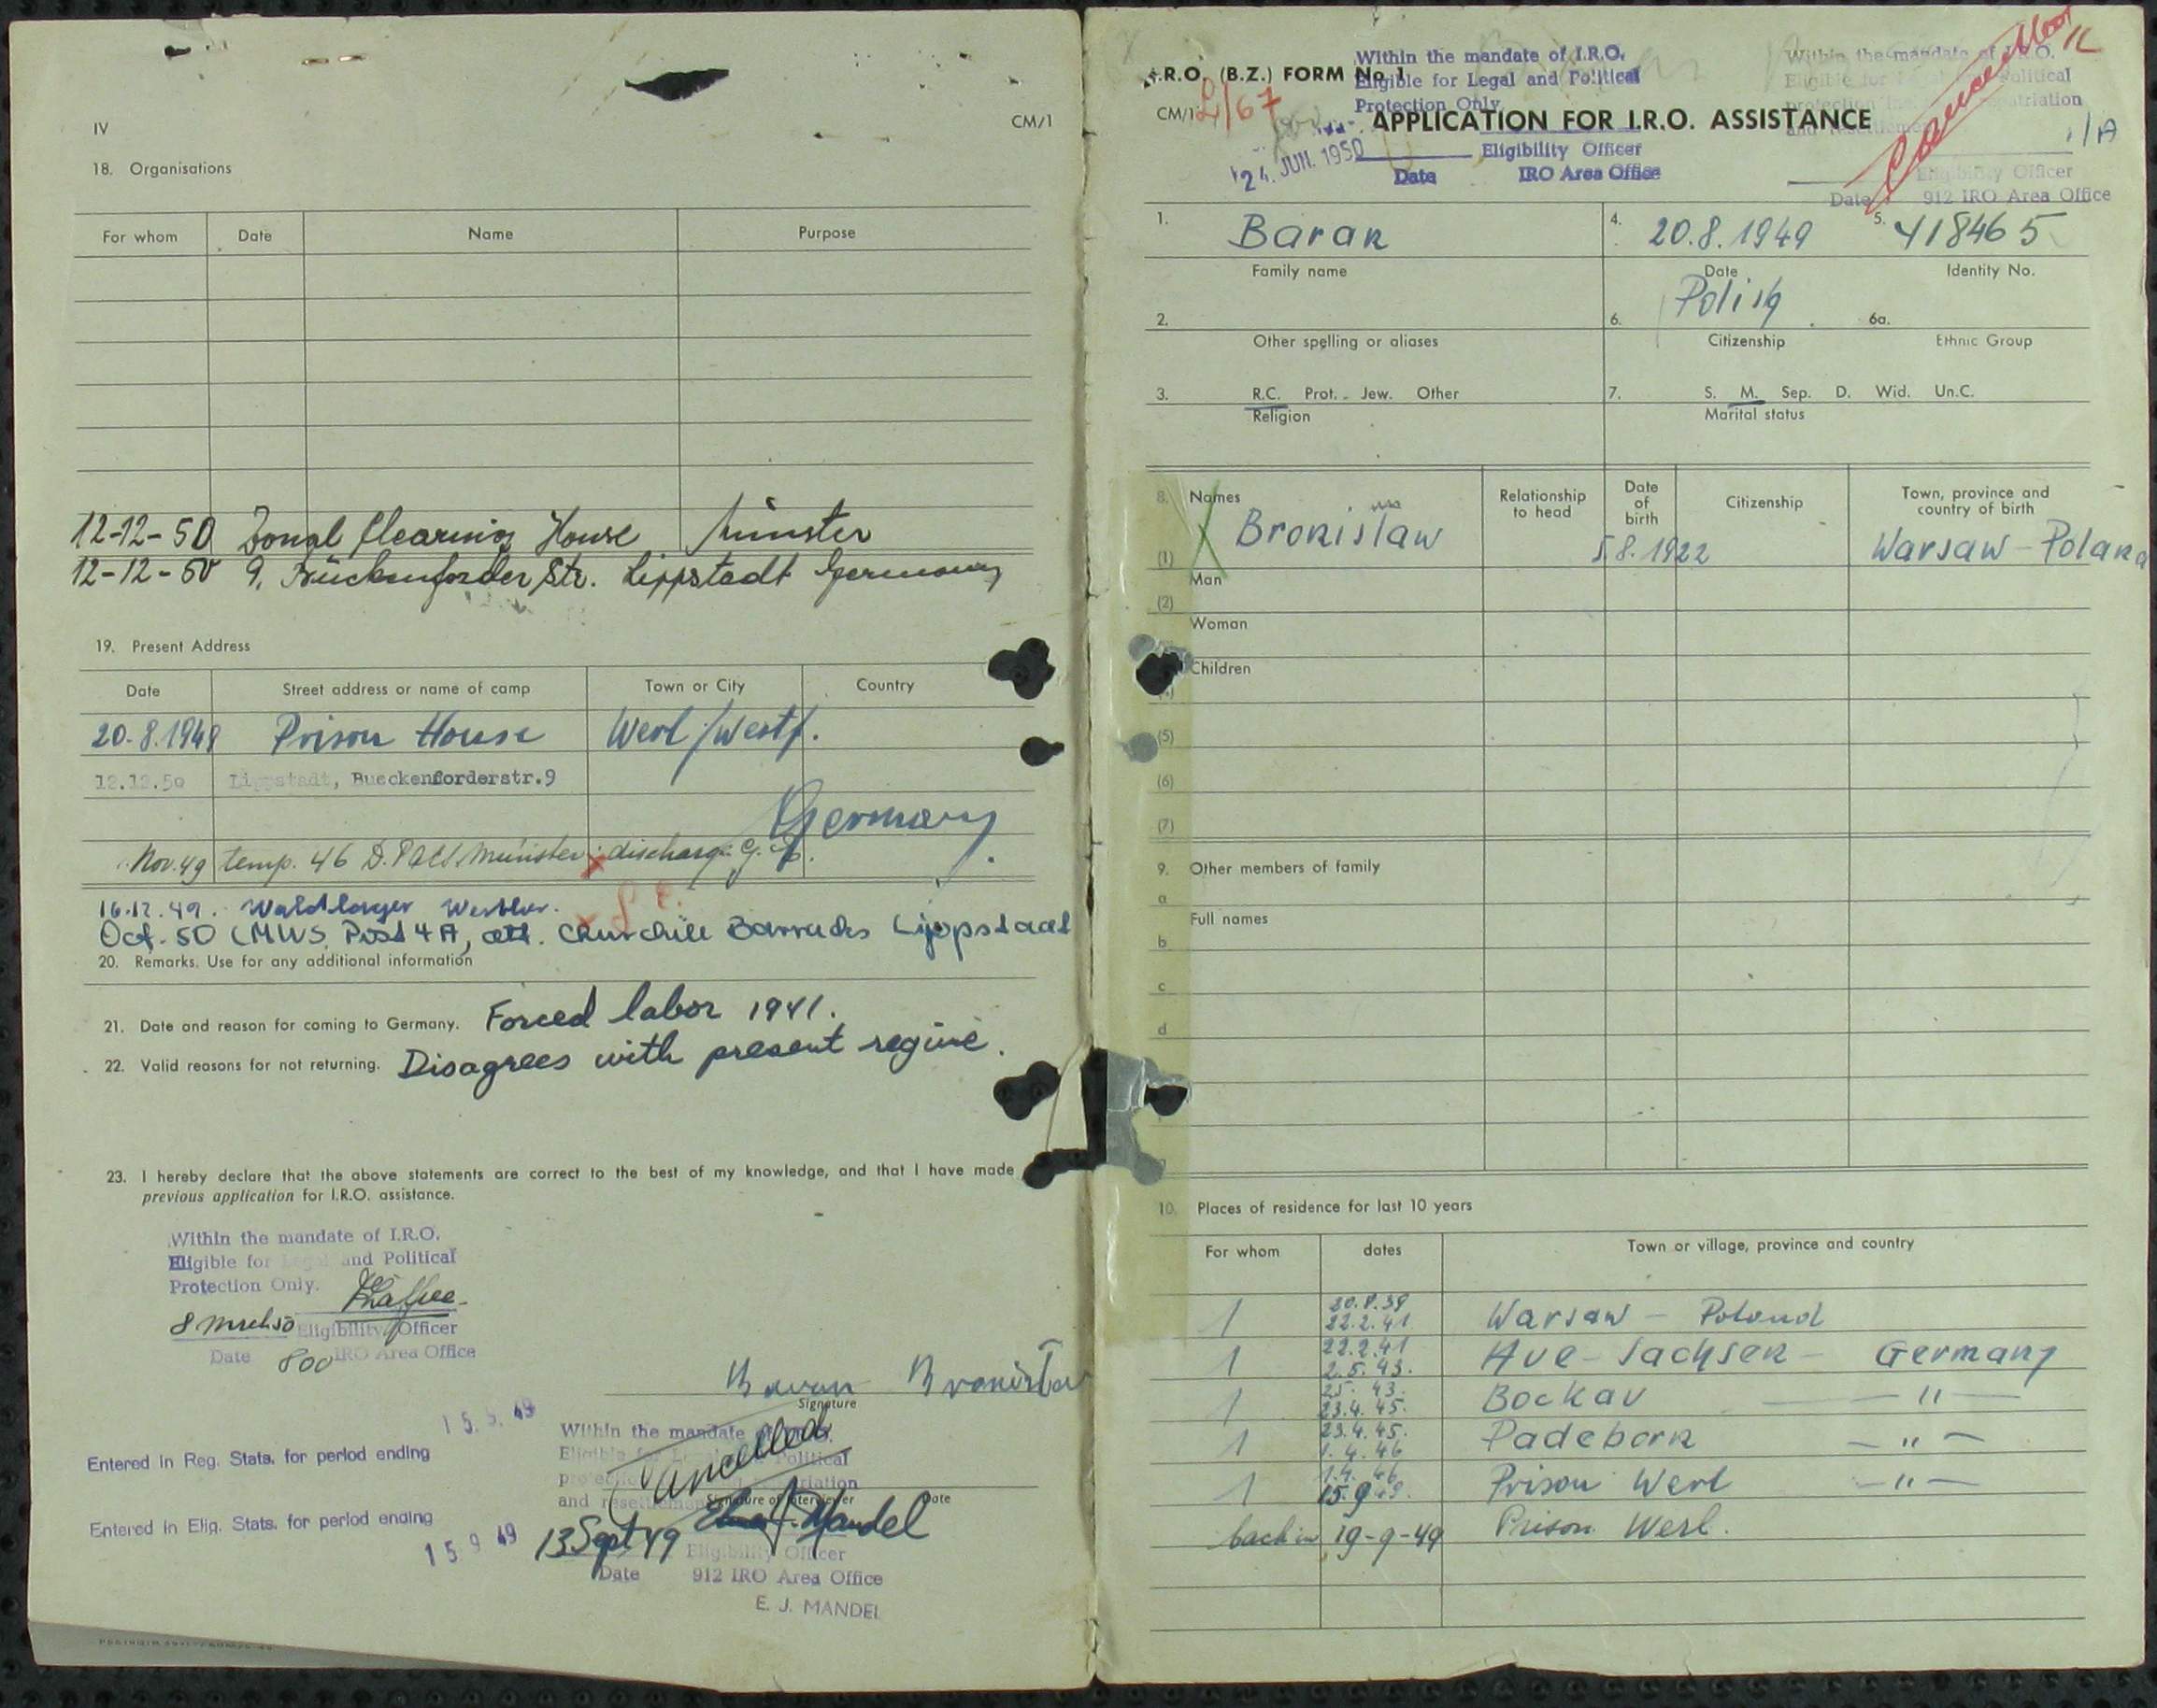 IV
CM/1
18. Organisations
For whom Date Name Purpose
12-12-50 Zonal Clearing House Münster
12-12-50 9, Bückenforder Str. Lippstadt Germany
19. Present Address
Date Street address or name of camp Town or City Country
20.8.1949 Prison House Werl/Westf.
12.12.50 Lippstadt, Bueckenforderstr.9
Germany
Nov. 49 temp. 46 D.P.A.C.S. Münster discharge
16.12.49. Waldlager
Oct. 50 CMWS Post 4A, att. Churchill Barracks Lippstadt
20. Remarks. Use for any additional information
21. Date and reason for coming to Germany. Forced labor 1941.
22. Valid reasons for not returning. Disagrees with present regime.
23. I hereby declare that the above statements are correct to the best of my knowledge, and that I have made
previous application for I.R.O. assistance.
Within the mandate of I.R.O.
Eligible for Legal and Political
Protection Only.
8 March 50 Eligibility Officer
Date 800 IRO Area Office
Baran Bronisław
Signature
15.9.49
Entered in Reg. Stats. for period ending
Within the mandate of I.R.O.
Eligible for Legal and Political
protection
and resettlement
Cancelled
Signature of Interviewer Date
Entered in Elig. Stats. for period ending
15 9 49
13 Sept 49 Mandel
Eligibility Officer
Date 912 IRO Area Office
E. J. MANDEL
I.R.O. (B.Z.) FORM No. 1
CM/1
2/67
Within the mandate of I.R.O.
Eligible for Legal and Political
Protection Only.
APPLICATION FOR I.R.O. ASSISTANCE
24. JUN. 1950
Eligibility Officer
Date IRO Area Office
Within the mandate of I.R.O.
Eligible for Legal and Political
protection repatriation
and resettlement
Cancelled
1/A
Eligibility Officer
Date 912 IRO Area Office
1. Baran
Family name
4. 20.8.1949
Date
5. 418465
Identity No.
2.
Other spelling or aliases
6. Polish
Citizenship
6a.
Ethnic Group
3. R.C. Prot. Jew. Other
Religion
7. S. M. Sep. D. Wid. Un.C.
Marital status
8. Names Relationship to head Date of birth Citizenship Town, province and country of birth
(1) X Bronisław 5.8.1922 Warsaw - Poland
Man
(2)
Woman
Children
(4)
(5)
(6)
(7)
9. Other members of family
a
Full names
b
c
d
10. Places of residence for last 10 years
For whom dates Town or village, province and country
1 20.8.39 22.2.41 Warsaw - Poland
1 22.2.41 2.5.43. Aue - Sachsen - Germany
1 2.5. 43. 23.4.45. Bockau - " -
1 23.4.45. 1.4.46 Padeborn - " -
1 1.4.46 15.9.49. Prison Werl - " -
back in 19-9-49 Prison Werl.